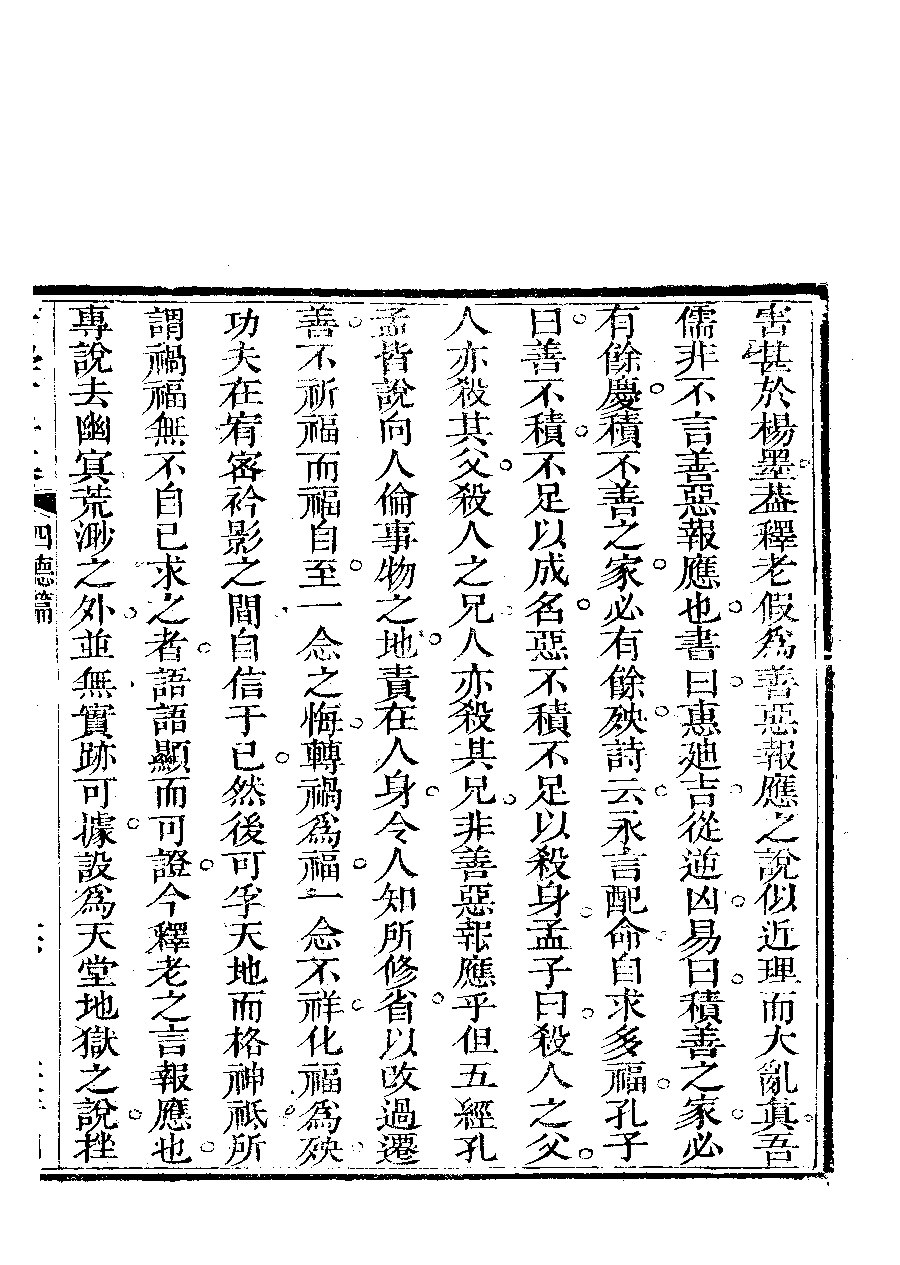 害甚於楊墨葢釋老假爲善惡報應之說似近理而大亂眞吾
儒非不言善惡報應也書曰惠廸吉從逆凶易曰積善之家必
有餘慶積不善之家必有餘殃詩云永言配命自求多福孔子
曰善不積不足以成名惡不積不足以殺身孟子曰殺人之父
人亦殺其父殺人之兄人亦殺其兄非善惡報應乎但五經孔
孟皆說向人倫事物之地責在人身令人知所修省以改過遷
善不祈福而福自至一念之悔轉禍爲福一念不祥化福爲殃
功夫在宥密衿影之間自信于已然後可孚天地而格神祗所
謂禍福無不自已求之者語語顯而可證今釋老之言報應也
專說去幽冥荒渺之外並無實跡可據設爲天堂地獄之說挫
四德篇